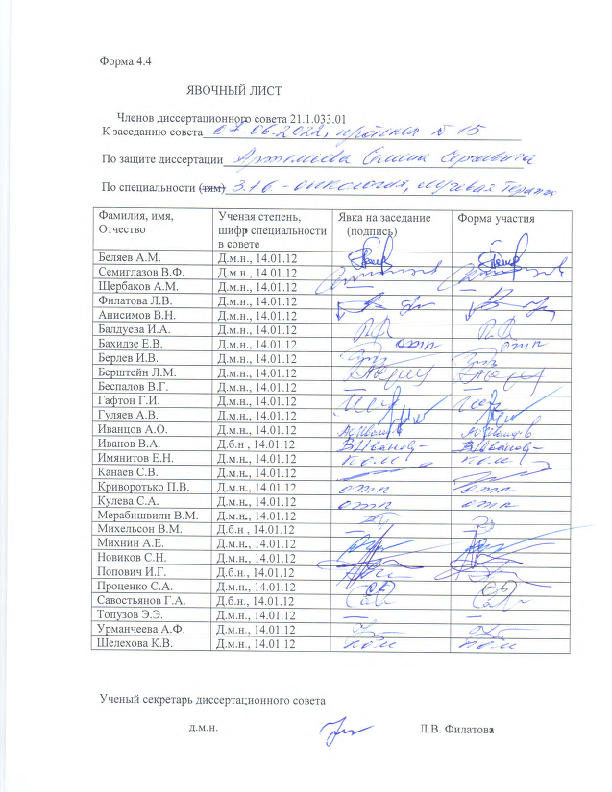 Форма 4.4
ЯВОЧНЫЙ ЛИСТ
Членов диссертационного совета 21.1.033.01
К заседанию совета 07.06.2022, протокол № 15
По защите диссертации
По специальности (тям) 3.1.6. - онкология, лучевая терапия
Фамилия, имя, Отчество Ученая степень, шифр специальности в совете Явка на заседание (подпись) Форма участия
Беляев А.М. Д.м.н., 14.01.12
Семиглазов В.Ф. Д.м.н., 14.01.12
Щербаков А.М. Д.м.н., 14.01.12 — —
Филатова Л.В. Д.м.н., 14.01.12
Анисимов В.Н. Д.м.н., 14.01.12
Балдуева И.А. Д.м.н., 14.01.12
Бахидзе Е.В. Д.м.н., 14.01.12 отп отп
Берлев И.В. Д.м.н., 14.01.12
Берштейн Л.М. Д.м.н., 14.01.12
Беспалов В.Г. Д.м.н., 14.01.12 — —
Гафтон Г.И. Д.м.н., 14.01.12
Гуляев А.В. Д.м.н., 14.01.12
Иванцов А.О. Д.м.н., 14.01.12
Иванов В.А. Д.б.н., 14.01.12 ВИванов ВИванов
Имянитов Е.Н. Д.м.н., 14.01.12 ком ком
Канаев С.В. Д.м.н., 14.01.12
Криворотько П.В. Д.м.н., 14.01.12 отп отп
Кулева С.А. Д.м.н., 14.01.12 отп отп
Мерабишвили В.М. Д.м.н., 14.01.12
Михельсон В.М. Д.б.н., 14.01.12
Михнин А.Е. Д.м.н., 14.01.12
Новиков С.Н. Д.м.н., 14.01.12
Попович И.Г. Д.б.н., 14.01.12
Проценко С.А. Д.м.н., 14.01.12
Савостьянов Г.А. Д.б.н., 14.01.12
Топузов Э.Э. Д.м.н., 14.01.12 — —
Урманчеева А.Ф. Д.м.н., 14.01.12
Шелехова К.В. Д.м.н., 14.01.12 ком ком
Ученый секретарь диссертационного совета
д.м.н. Л.В. Филатова